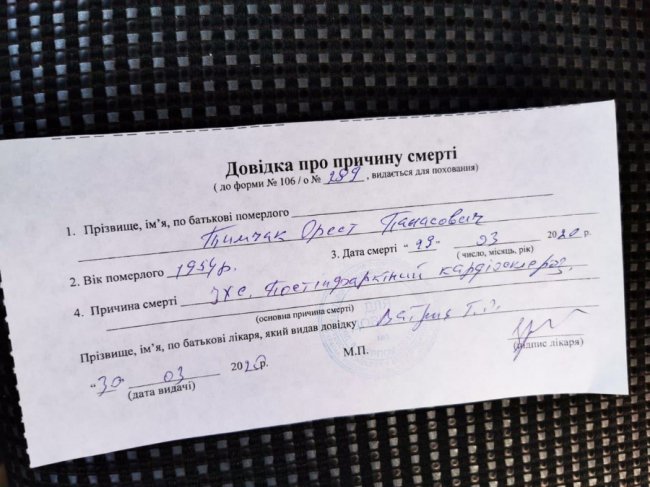 Довідка про причину смерті
( до форми № 106 / о № 289 , видається для поховання)
1. Прізвище, ім’я, по батькові померлого
Тимчак Орест Панасович
2. Вік померлого 1954 р. 3. Дата смерті “29” 03 2020 р.
( число, місяць, рік)
4. Причина смерті ІХС. Постінфарктний кардіосклероз.
(основна причина смерті)
Прізвище, ім’я, по батькові лікаря, який видав довідку
М.П. (підпис лікаря)
“30” 03 2020.
(дата видачі)